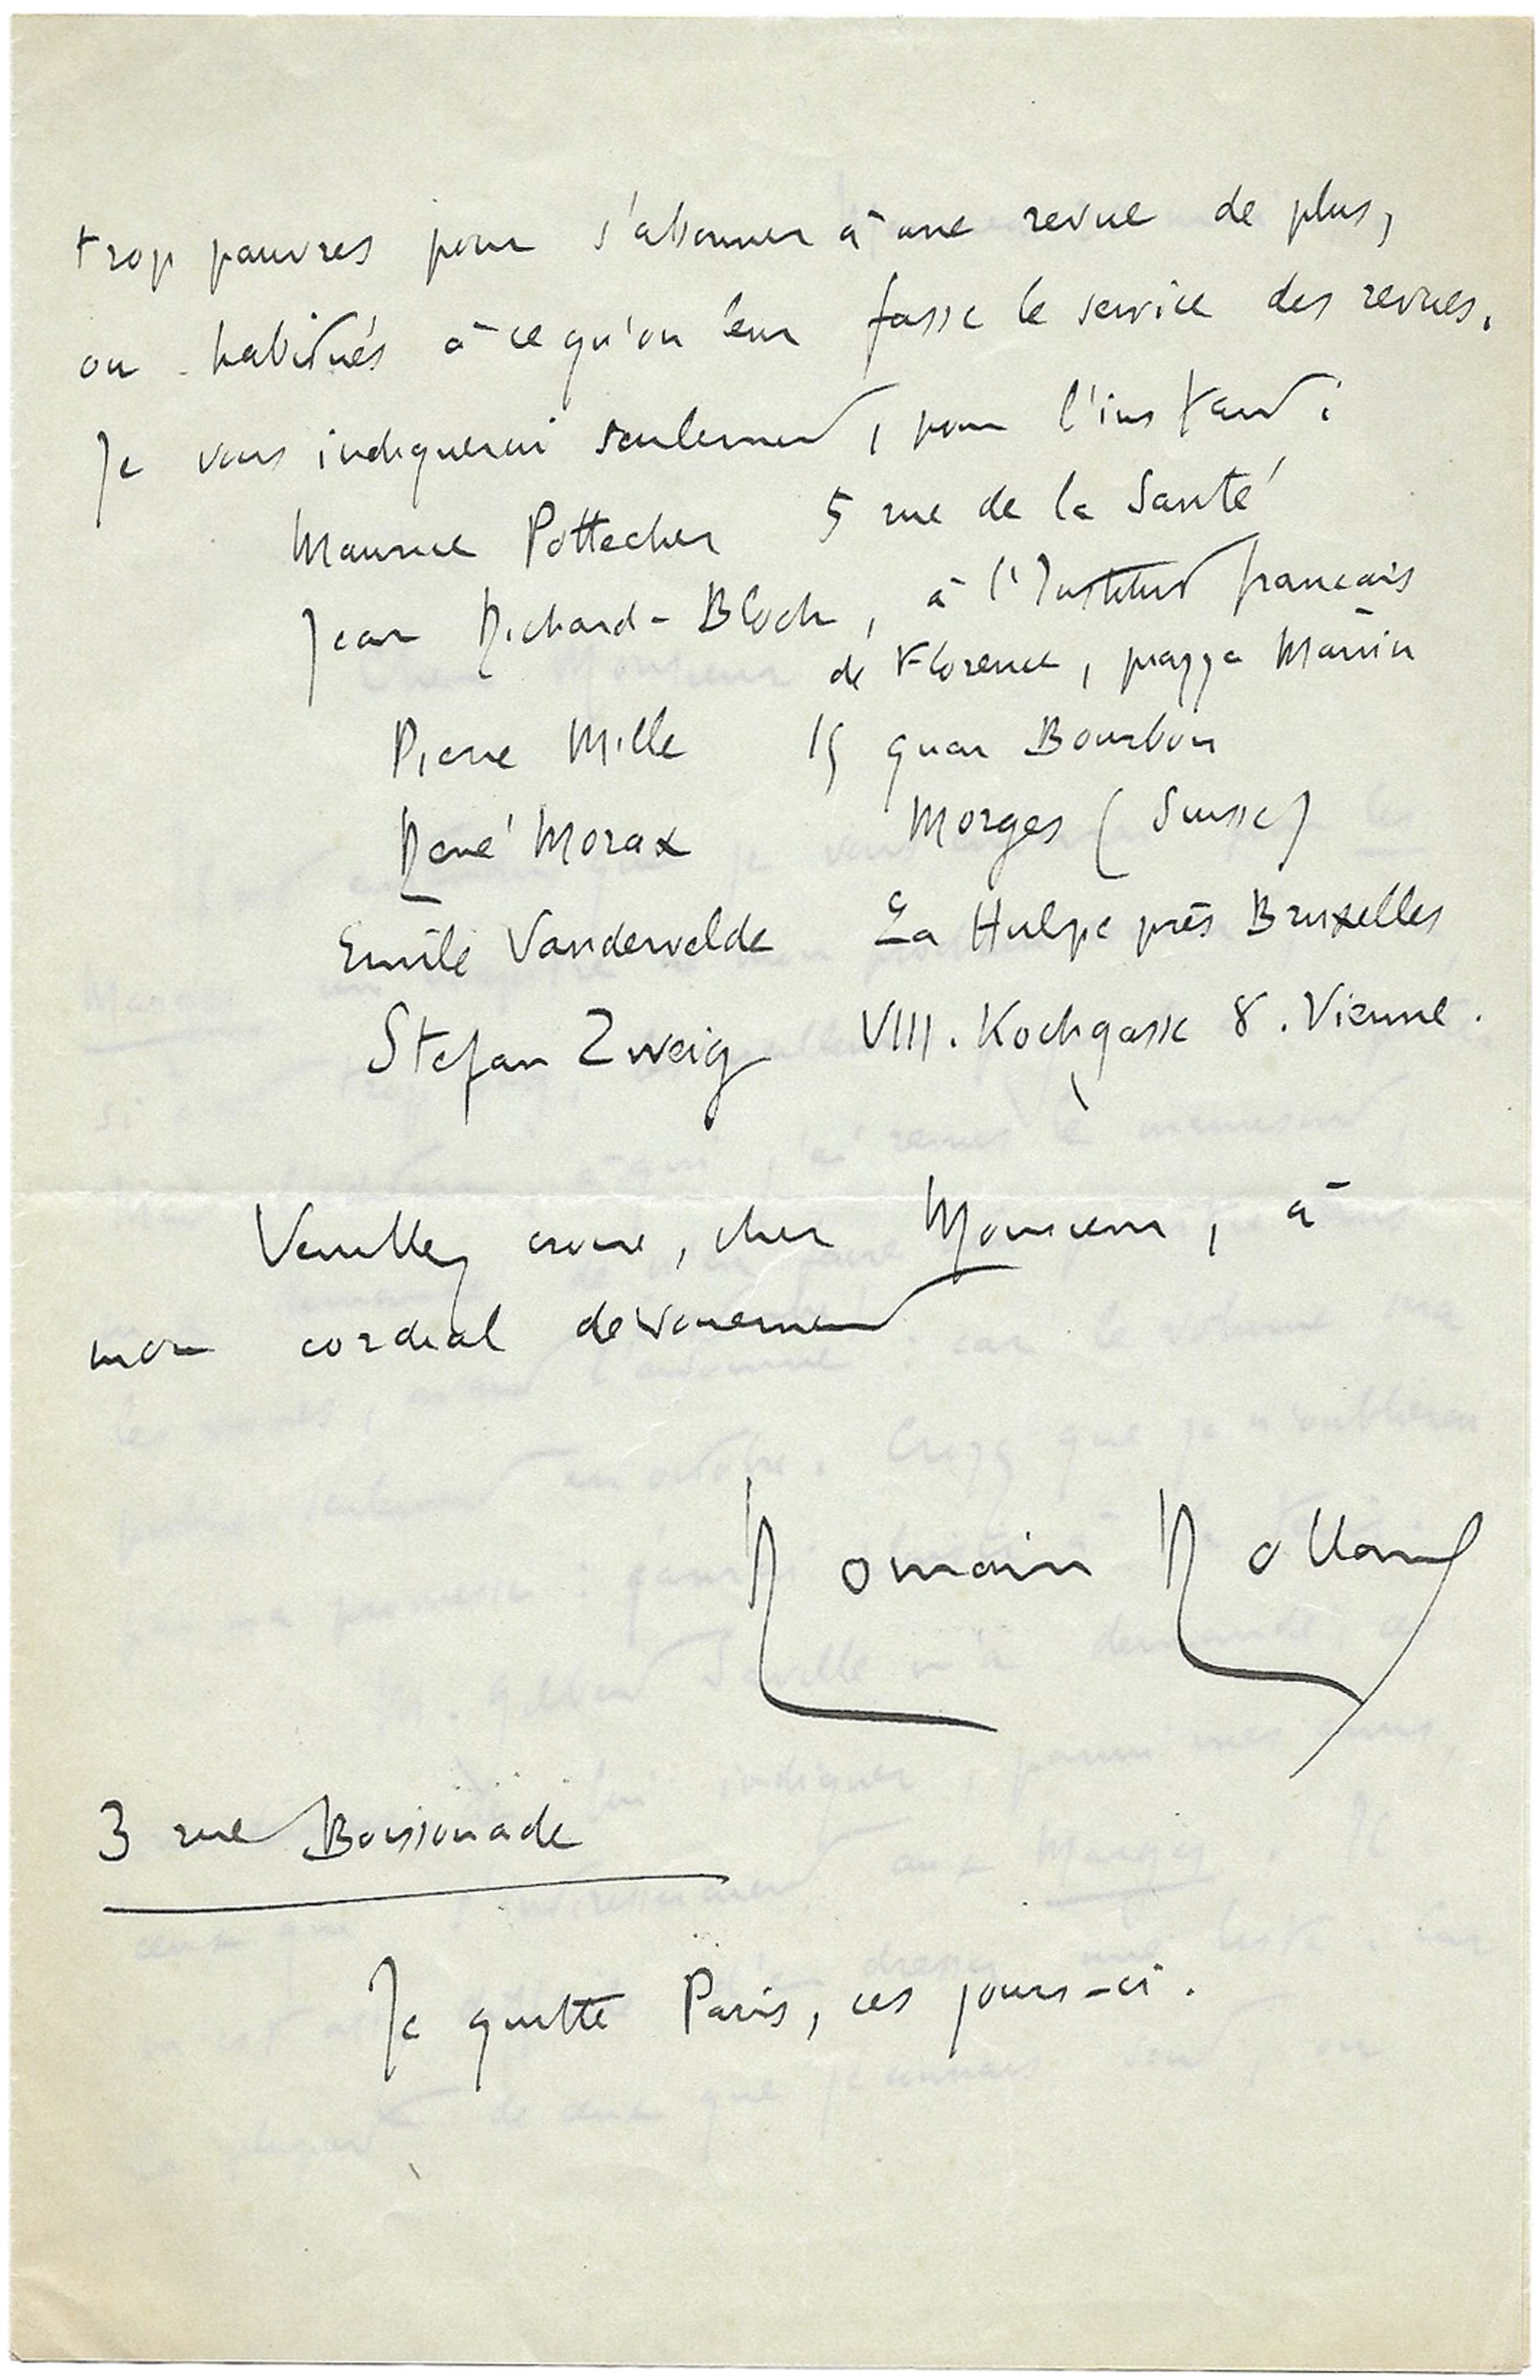 trop pauvres pour s'abonner à une revue de plus,
ou habitués à ce qu'on leur fasse le service des revues.
Je vous indiquerai seulement, pour l'instant :
Maurice Pottecher 5 rue de la Santé
Jean Richard-Bloch, à l'Institut français
de Florence, piazza Manin
Pierre Mille 15 quai Bourbon
René Morax Morges (Suisse)
Emile Vandervelde La Hulpe près Bruxelles
Stefan Zweig VIII. Kochgasse 8. Vienne.
Veuillez croire, cher Monsieur, à
mon cordial dévouement
Romain Rolland
3 rue Boissonade
Je quitte Paris, ces jours-ci.